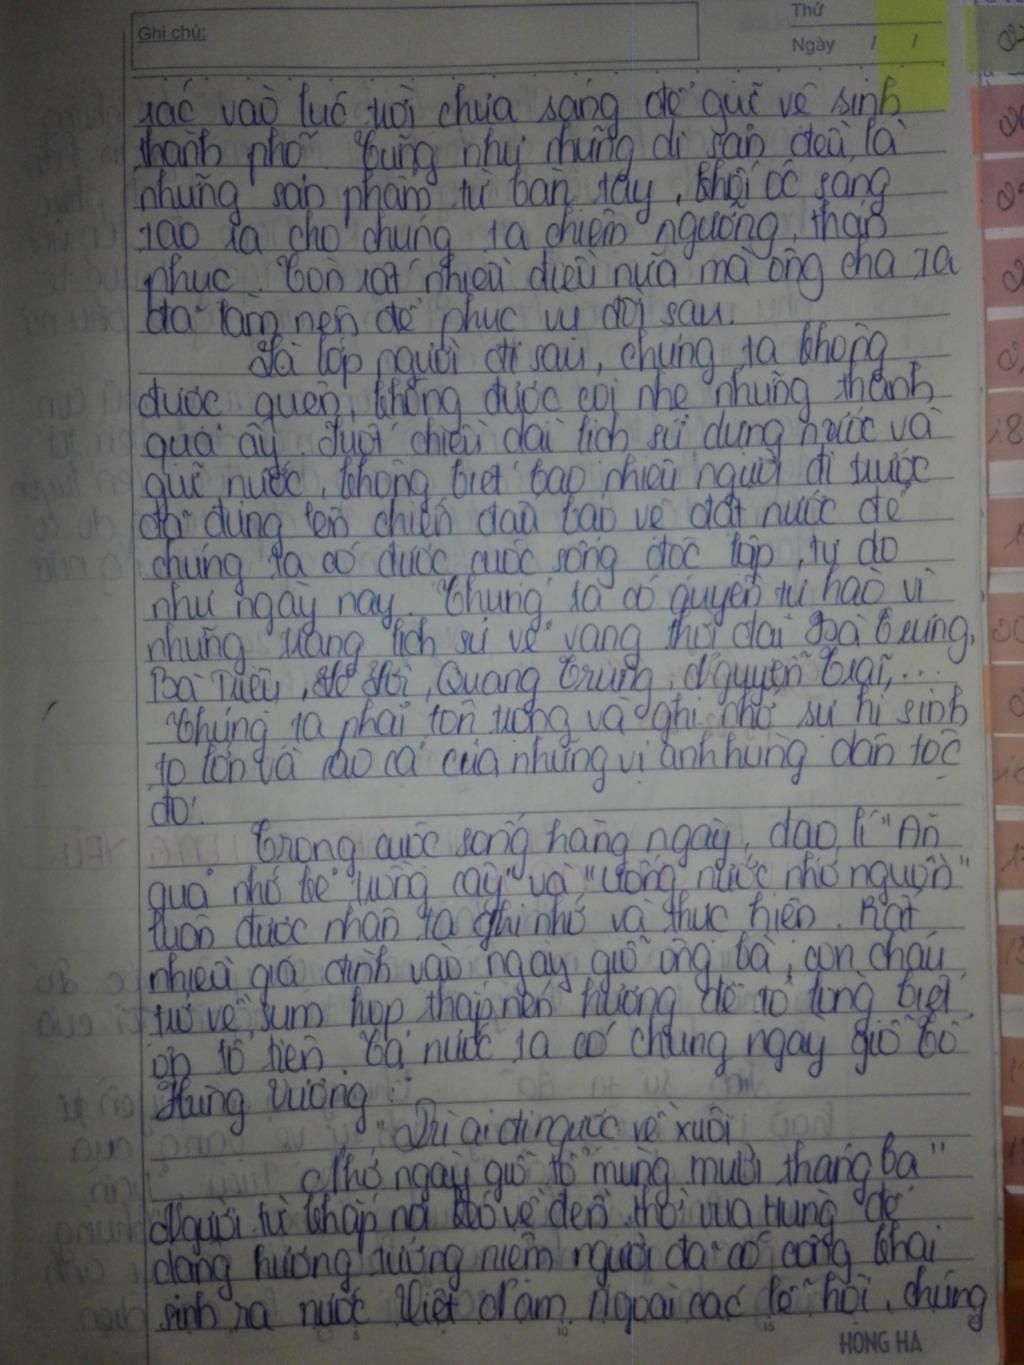 Ghi chú:
Thứ
Ngày / /
rác vào lúc trời chưa sáng để giữ vệ sinh
thành phố. Cũng như những di sản đều là
những sản phẩm từ bàn tay, khối óc sáng
tạo ra cho chúng ta chiêm ngưỡng, thán
phục. Còn rất nhiều điều nữa mà ông cha ta
đã làm nên để phục vụ đời sau.
Là lớp người đi sau, chúng ta không
được quên, không được coi nhẹ những thành
quả ấy. Suốt chiều dài lịch sử dựng nước và
giữ nước, không biết bao nhiêu người đi trước
đã đứng lên chiến đấu bảo vệ đất nước để
chúng ta có được cuộc sống độc lập, tự do
như ngày nay. Chúng ta có quyền tự hào vì
những trang lịch sử vẻ vang thời đại Bà Trưng,
Bà Triệu, Quang Trung, Nguyễn Trãi,...
Chúng ta phải tôn trọng và ghi nhớ sự hi sinh
to lớn và cao cả của những vị anh hùng dân tộc
đó.
Trong cuộc sống hàng ngày, đạo lí "Ăn
quả nhớ kẻ trồng cây" và "Uống nước nhớ nguồn"
luôn được nhân ta ghi nhớ và thực hiện. Rất
nhiều gia đình vào ngày giỗ ông bà, con cháu
tứ về sum họp thắp nén hương để tỏ lòng biết
ơn tổ tiên. Cả nước ta có chung ngày giỗ Tổ
Hùng Vương:
"Dù ai đi ngược về xuôi
Nhớ ngày giỗ tổ mùng mười tháng ba"
Người từ khắp nơi đổ về đền thờ vua Hùng để
dâng hương tưởng niệm người đã có công khai
sinh ra nước Việt Nam. Ngoài các lễ hội, chúng
HONG HA